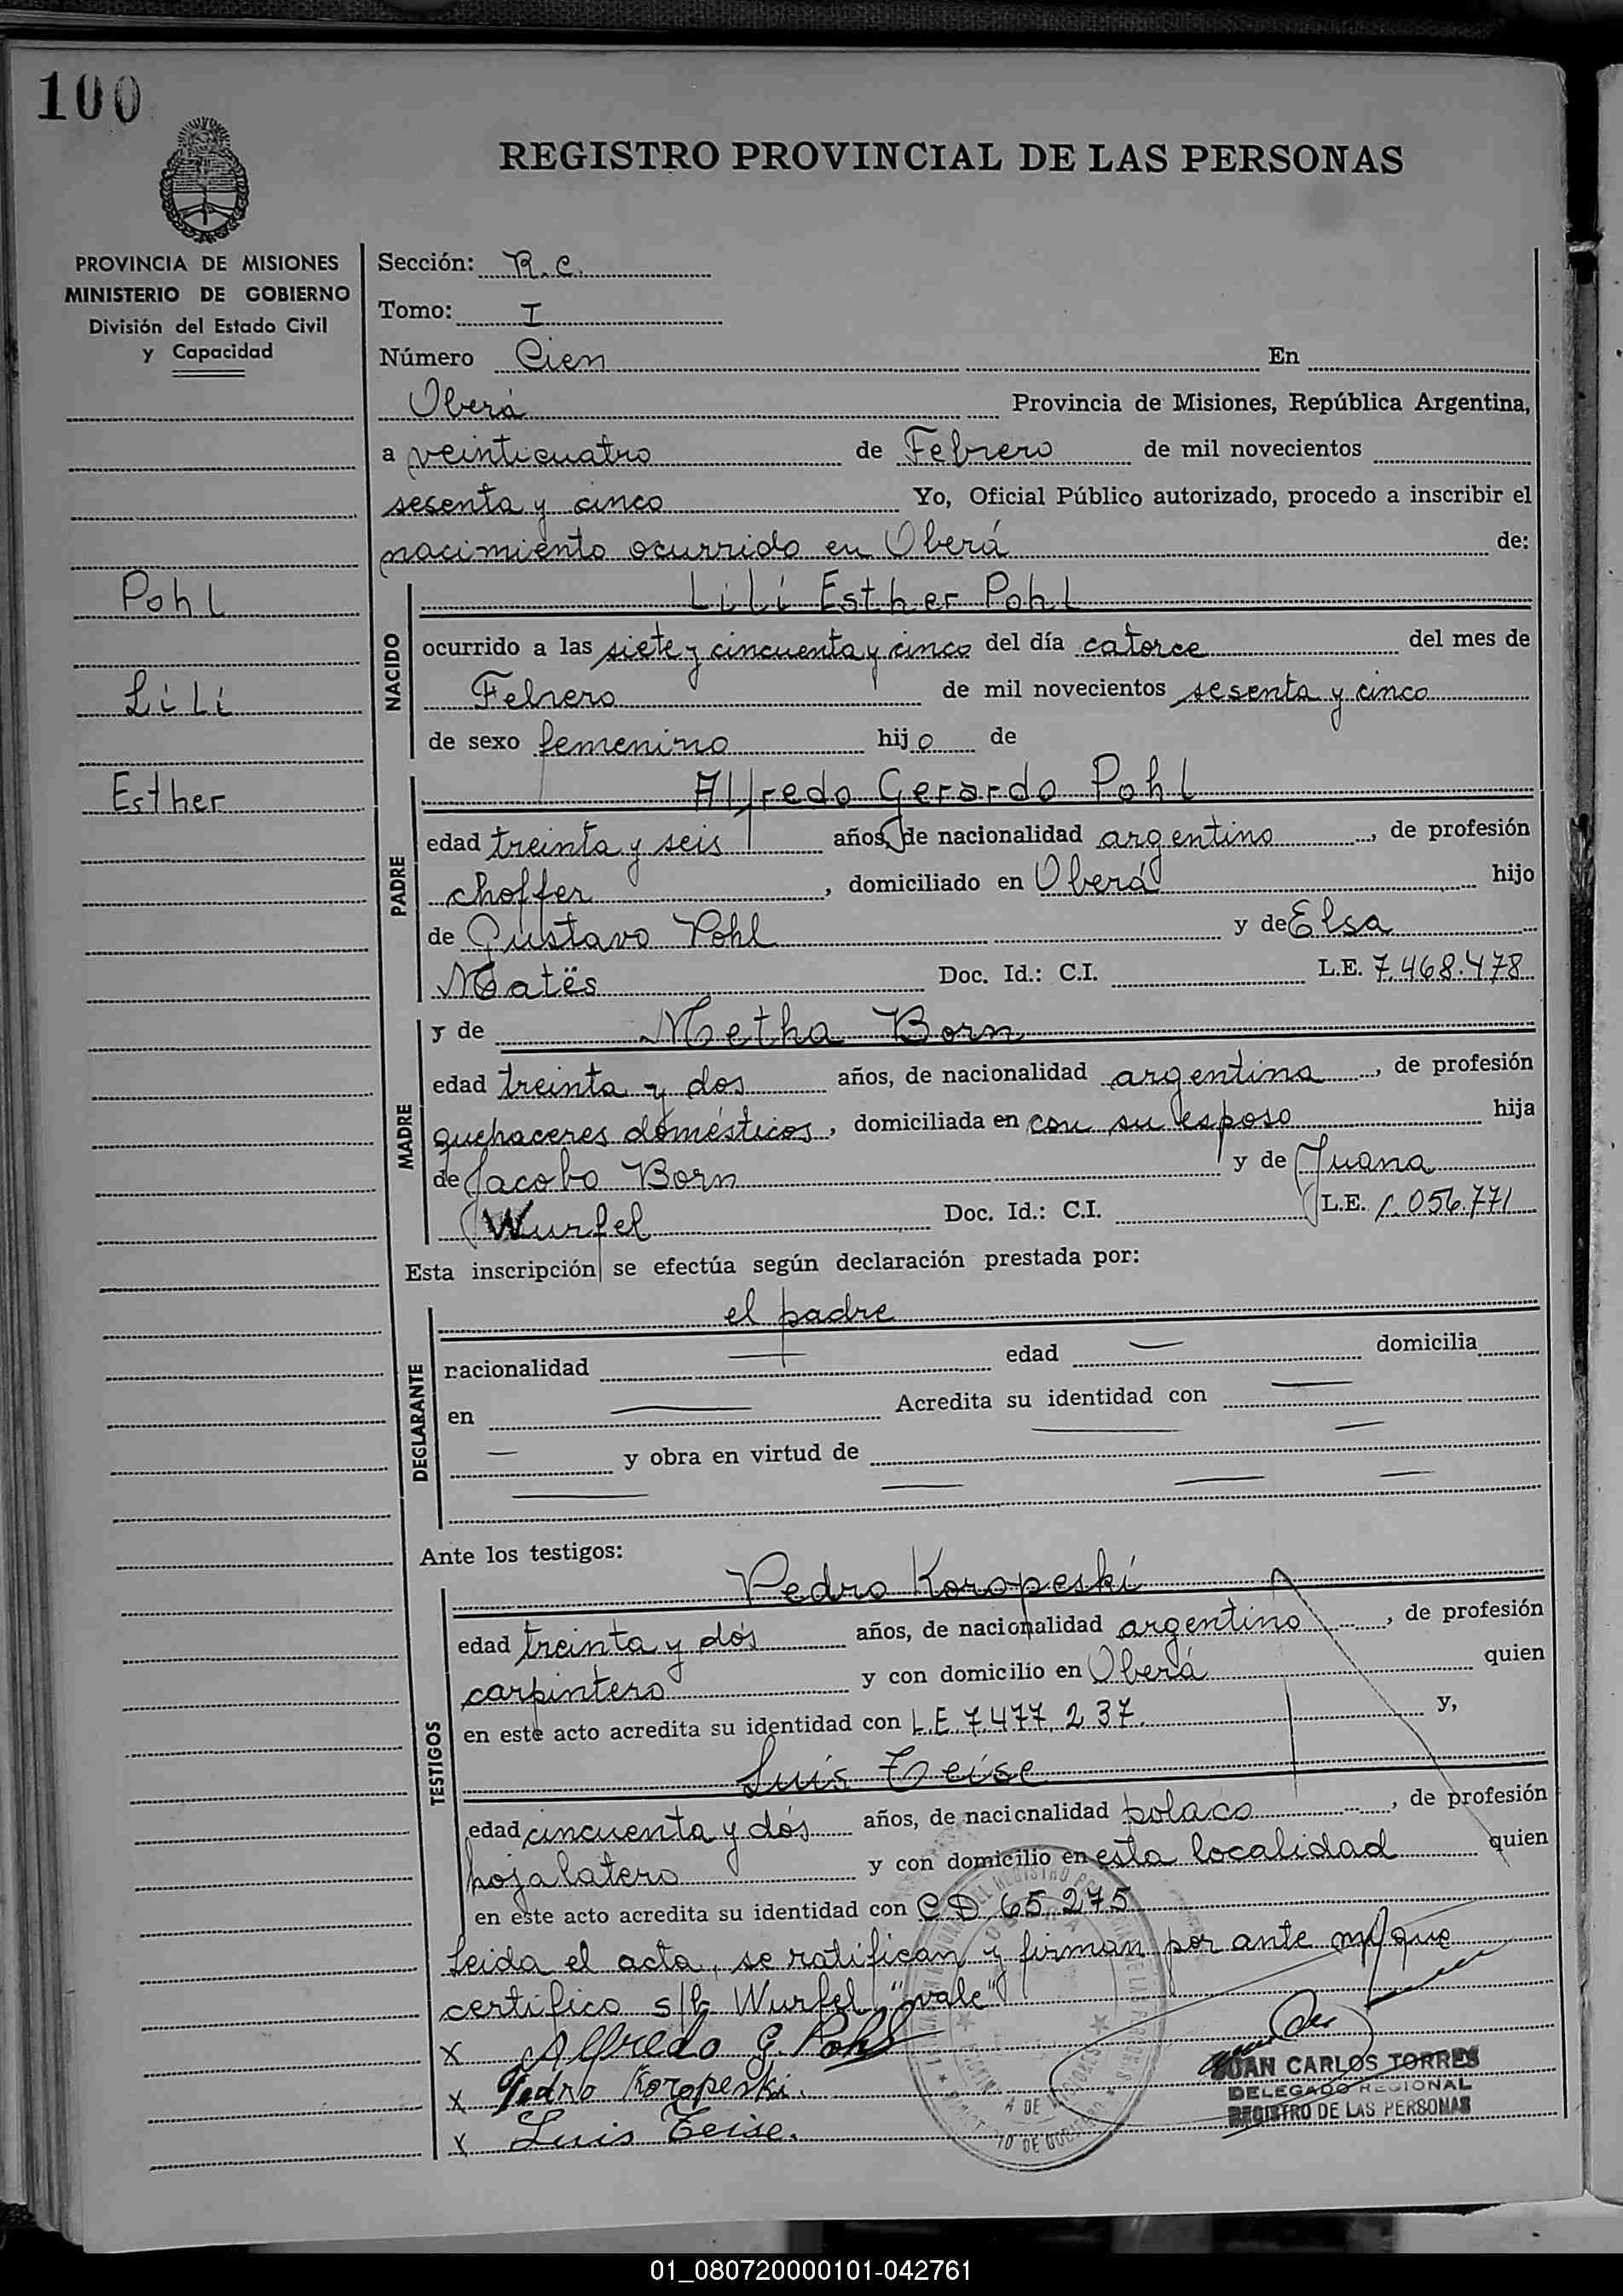 100
REGISTRO PROVINCIAL DE LAS PERSONAS
PROVINCIA DE MISIONES
MINISTERIO DE GOBIERNO
División del Estado Civil
y Capacidad
Pohl
Lili
Esther
Sección: R.C.
Tomo: I
Número Cien En
Oberá Provincia de Misiones, República Argentina,
a veinticuatro de Febrero de mil novecientos
sesenta y cinco Yo, Oficial Público autorizado, procedo a inscribir el
nacimiento ocurrido en Oberá de:
NACIDO
Lili Esther Pohl
ocurrido a las siete y cincuenta y cinco del día catorce del mes de
Febrero de mil novecientos sesenta y cinco
de sexo femenino hijo de
PADRE
Alfredo Gerardo Pohl
edad treinta y seis años, de nacionalidad argentino, de profesión
choffer, domiciliado en Oberá hijo
de Gustavo Pohl y de Elsa
Matës Doc. Id.: C.I. L.E. 7.468.478
MADRE
y de Metha Born
edad treinta y dos años, de nacionalidad argentina, de profesión
quehaceres domésticos, domiciliada en con su esposo hija
de Jacobo Born y de Juana
Wurfel Doc. Id.: C.I. L.E. 1.056.771
Esta inscripción se efectúa según declaración prestada por:
DEGLARANTE
el padre
racionalidad — edad — domicilia
en — Acredita su identidad con —
— y obra en virtud de — —
— — — —
Ante los testigos:
TESTIGOS
Pedro Koropeski
edad treinta y dos años, de nacionalidad argentino, de profesión
carpintero y con domicilio en Oberá quien
en este acto acredita su identidad con L.E 7.477.237. y,
Luis Teise
edad cincuenta y dos años, de nacionalidad polaco, de profesión
hojalatero y con domicilio en esta localidad quien
en este acto acredita su identidad con CD 65.275
Leida el acta, se ratifican y firman por ante mi que
certifico s/b Wurfel "vale"
x Alfredo G. Pohl
x Pedro Koropeski.
x Luis Teise.
JUAN CARLOS TORRES
DELEGADO REGIONAL
REGISTRO DE LAS PERSONAS
01_080720000101-042761